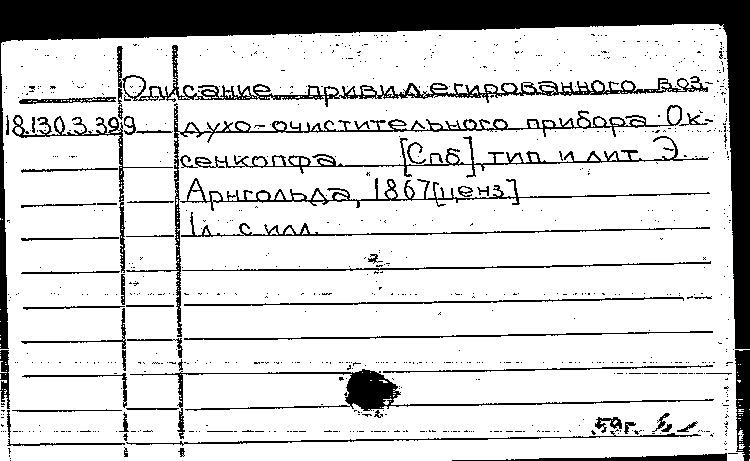 Описание привилегированного воз-
18.130.3.399 духо-очистительного прибора Ок-
сенкопфа. [Спб], тип. и лит. Э.
Арнгольда, 1867 [ценз]
1 л. с илл.
59г.